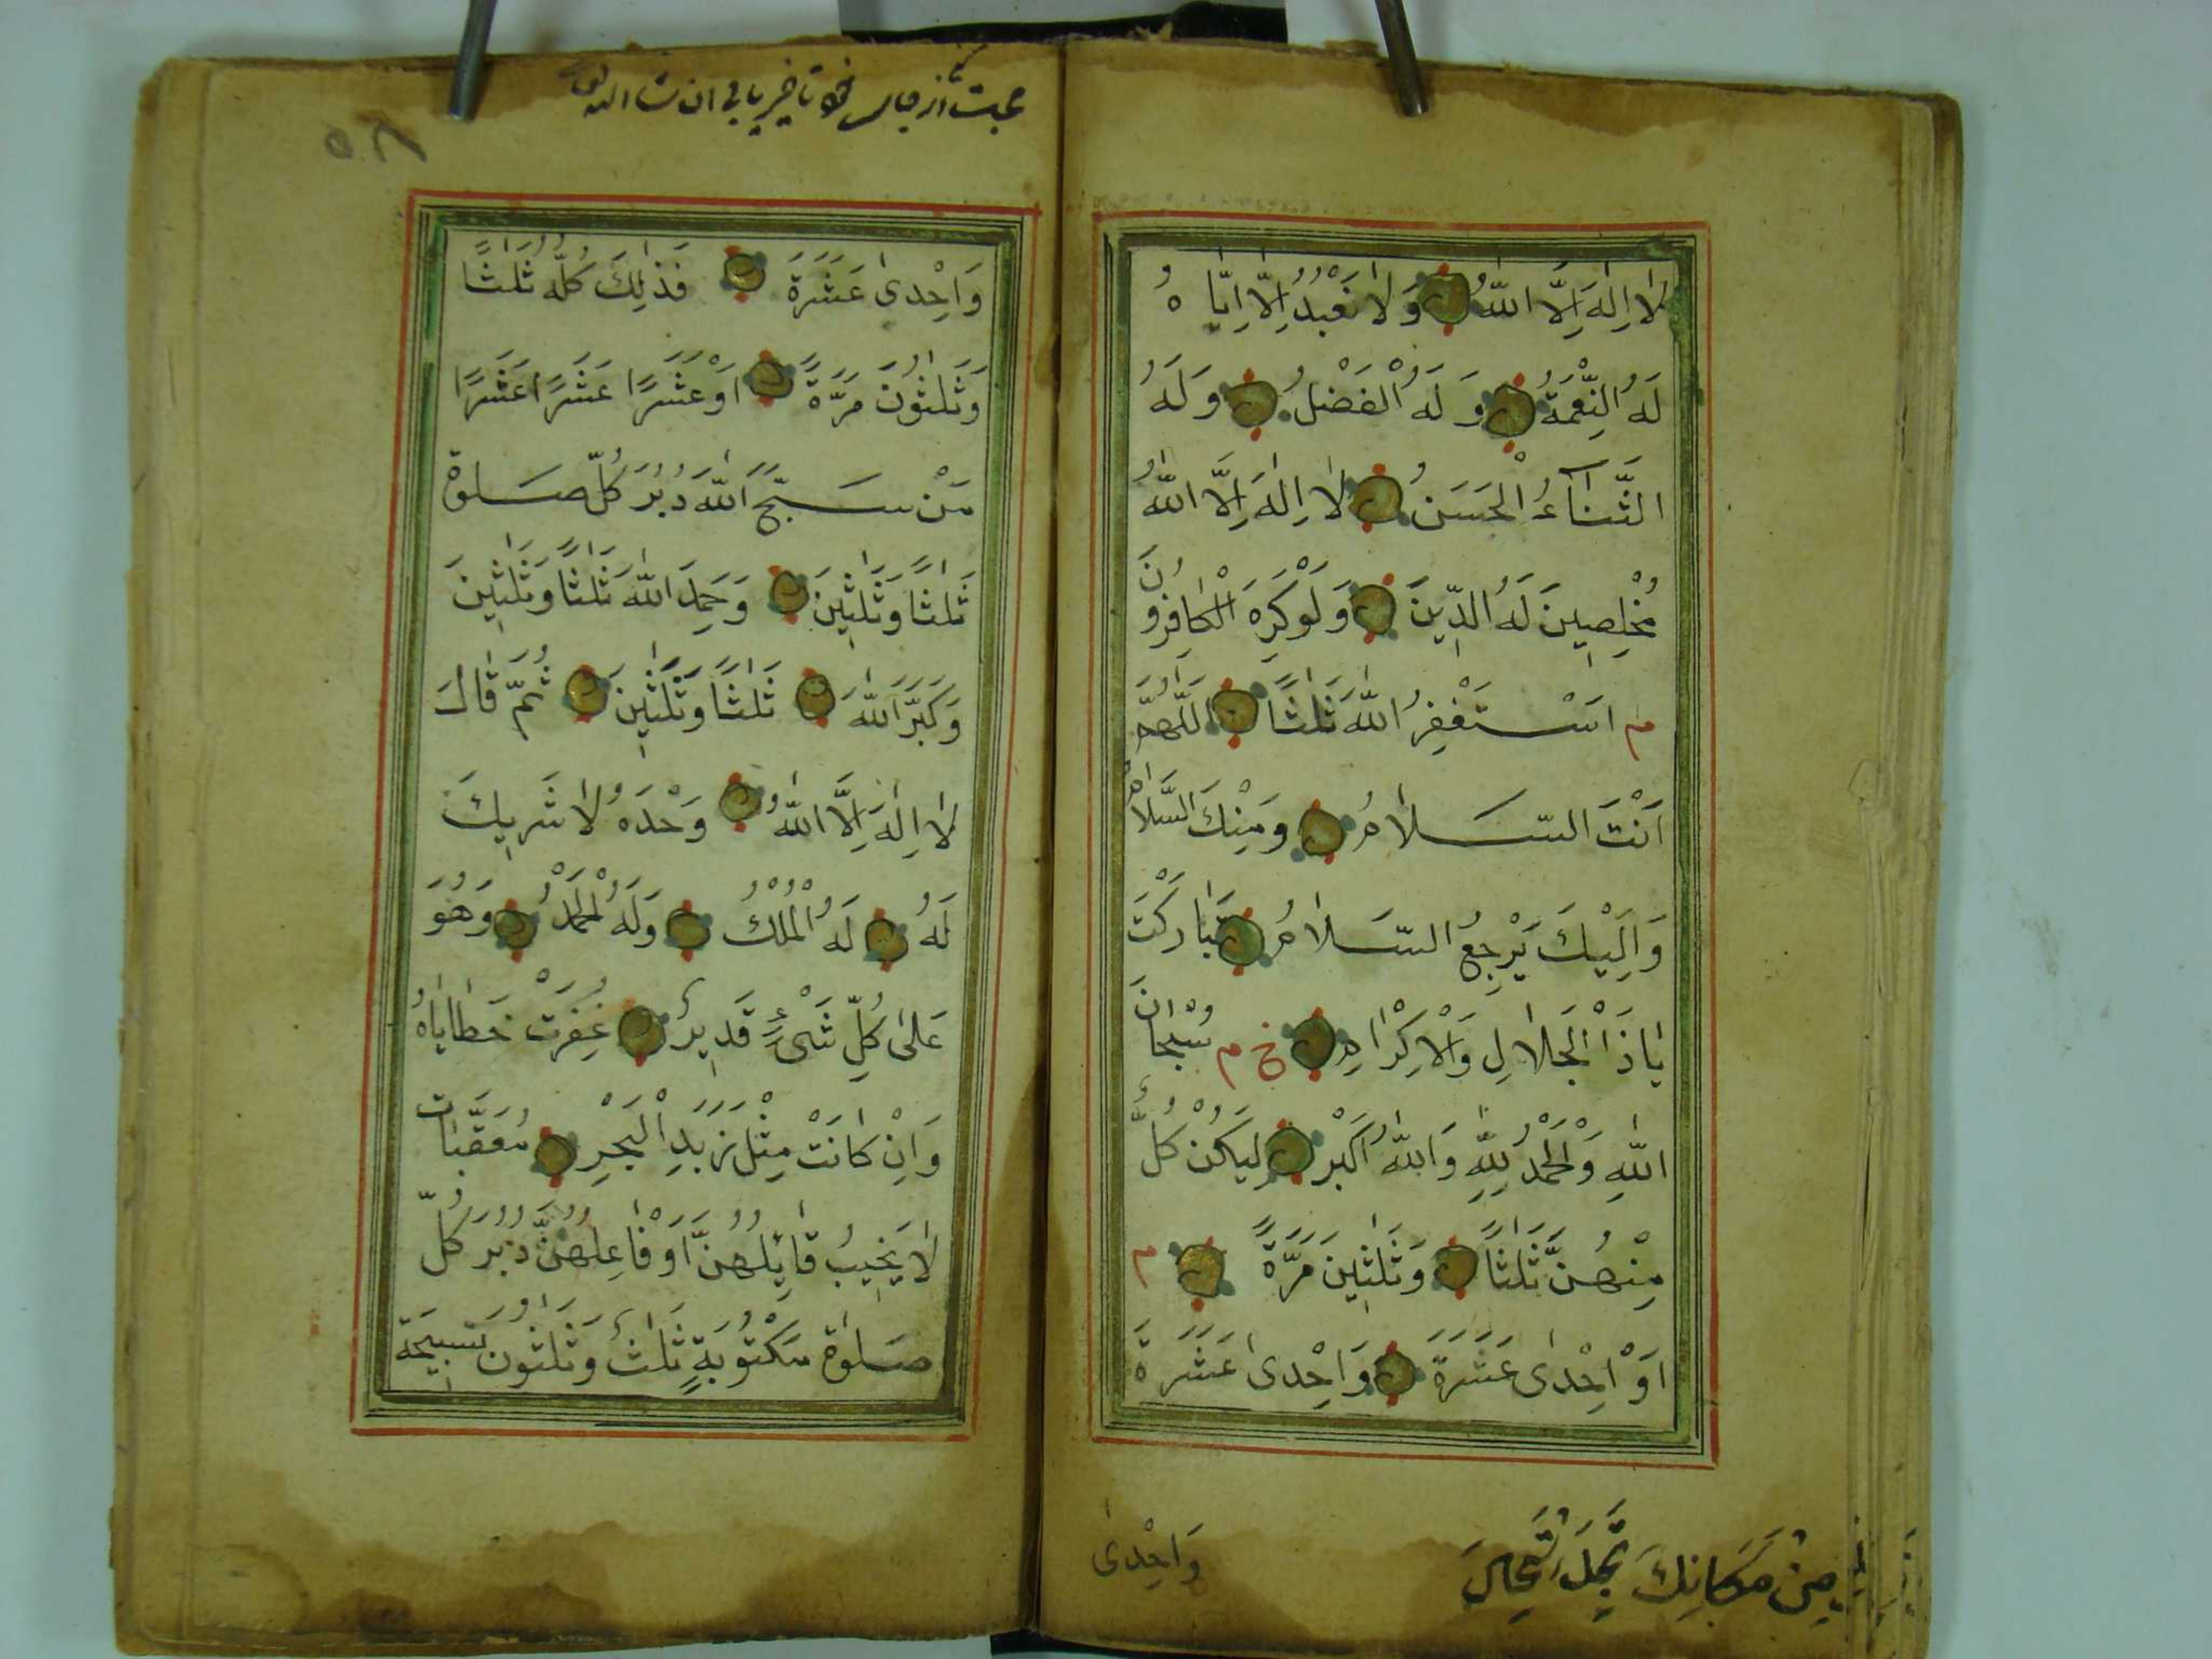 لَا اِلٰهَ اِلَّا اللّٰهُ وَلَا نَعْبُدُ اِلَّا اِيَّاهُ
لَهُ النِّعْمَةُ وَلَهُ الْفَضْلُ وَلَهُ
الثَّنَآءُ الْحَسَنُ لَا اِلٰهَ اِلَّا اللّٰهُ
مُخْلِصِينَ لَهُ الدِّينَ وَلَوْ كَرِهَ الْكَافِرُونَ
م اَسْتَغْفِرُ اللّٰهَ ثَلٰثًا اَللّٰهُمَّ
اَنْتَ السَّلَامُ وَمِنْكَ السَّلَامُ
وَاِلَيْكَ يَرْجِعُ السَّلَامُ تَبَارَكْتَ
يَا ذَا الْجَلَالِ وَالْاِكْرَامِ خ م سُبْحَانَ
اللّٰهِ وَالْحَمْدُ لِلّٰهِ وَاللّٰهُ اَكْبَرُ لِيَكُنْ كُلُّ
مِنْهُنَّ ثَلٰثًا وَثَلٰثِينَ مَرَّةً م
اَوْ اِحْدٰى عَشْرَةَ وَاِحْدٰى عَشَرَةَ
وَاِحْدٰى
مِنْ مَكَانِكَ
ان شا الله
٥٨
وَاِحْدٰى عَشَرَةَ فَذٰلِكَ كُلُّهُ ثَلٰثًا
وَثَلٰثُونَ مَرَّةً اَوْ عَشْرًا عَشْرًا عَشْرًا
مَنْ سَبَّحَ اللّٰهَ دُبُرَ كُلِّ صَلٰوة
ثَلٰثًا وَثَلٰثِينَ وَحَمِدَ اللّٰهَ ثَلٰثًا وَثَلٰثِينَ
وَكَبَّرَ اللّٰهَ ثَلٰثًا وَثَلٰثِينَ ثُمَّ قَالَ
لَا اِلٰهَ اِلَّا اللّٰهُ وَحْدَهُ لَا شَرِيكَ
لَهُ لَهُ الْمُلْكُ وَلَهُ الْحَمْدُ وَهُوَ
عَلٰى كُلِّ شَىْءٍ قَدِيرٌ غُفِرَتْ خَطَايَاهُ
وَاِنْ كَانَتْ مِثْلَ زَبَدِ الْبَحْرِ مُعَقَّبَات
لَا يَخِيبُ قَائِلُهُنَّ اَوْ فَاعِلُهُنَّ دُبُرَ كُلِّ
صَلٰوة مَكْتُوبَةٍ ثَلٰثٌ وَثَلٰثُونَ تَسْبِيحَة